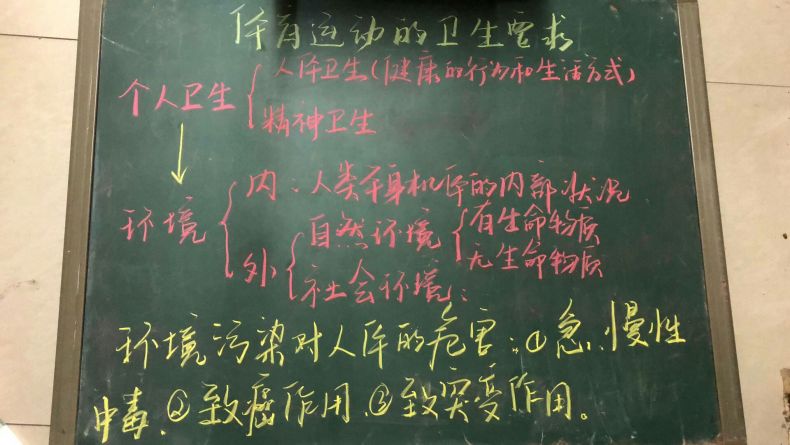 体育运动的卫生要求
个人卫生
人体卫生(健康的行为和生活方式)
精神卫生
环境
内:人类本身机体的内部状况
外
自然环境
有生命物质
无生命物质
社会环境:
环境污染对人体的危害:①急、慢性
中毒、②致癌作用、③致突变作用。